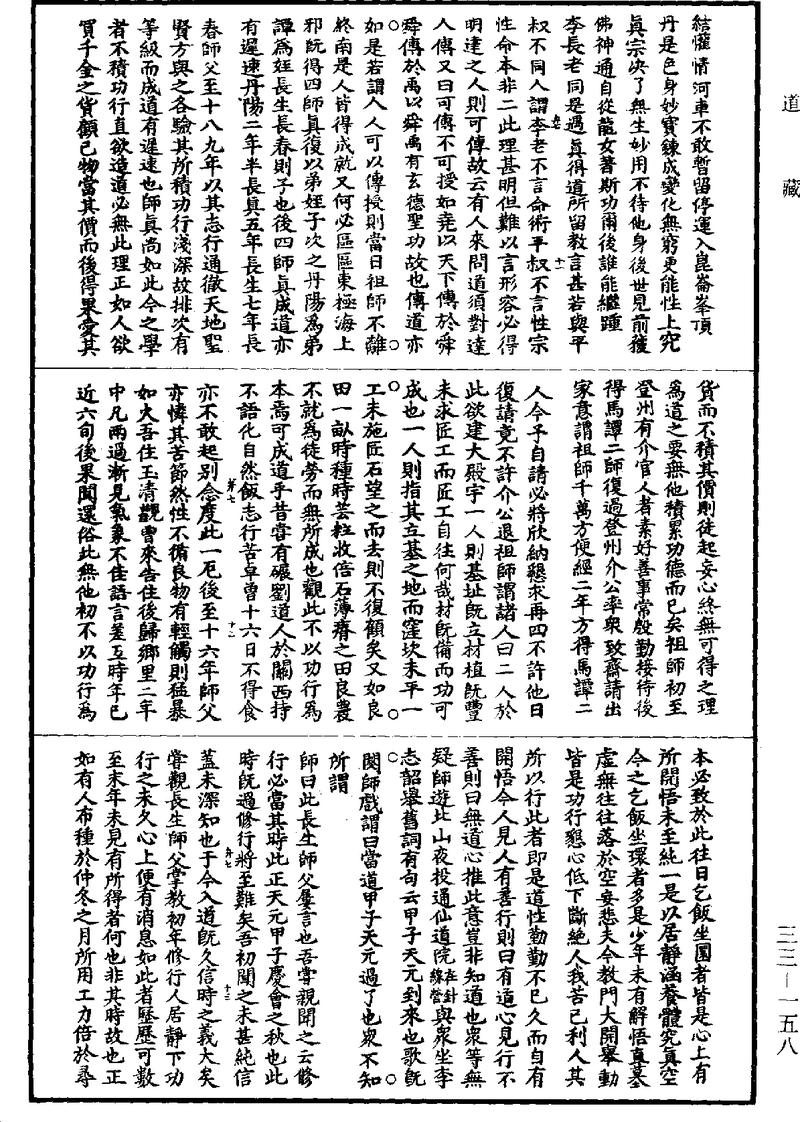 道藏
結懽情河車不敢暫留停運入崑崙峯頂
丹是色身妙寶鍊成變化無窮更能性上究
眞宗決了無生妙用不待他身後世見前獲
佛神通自從龍女著斯功爾後誰能繼踵
李長老同是遇眞得道所留教言甚若與平
叔不同人謂李老不言命術平叔不言性宗
性命本非二此理甚明但難以言形容必得
明達之人則可傳故云有人來問道須對達
人傳又曰可傳不可授如堯以天下傳於舜
舜傳於禹以舜禹有玄德聖功故也傳道亦
如是若謂人人可以傳授則當日祖師不離
終南是人皆得成就又何必區區東極海上
邪旣得四師眞復以弟姪子次之丹陽爲弟
譚爲姪長生長春則子也後四師眞成道亦
有遲速丹陽二年半長眞五年長生七年長
春師父至十八九年以其志行通徹天地聖
賢方與之各驗其所積功行淺深故排次有
等級而成道有遲速也師眞尚如此今之學
者不積功行直欲造道必無此理正如人欲
買千金之貨顧己物當其價而後得果愛其
貨而不積其價則徒起妄心終無可得之理
爲道之要無他積累功德而已矣祖師初至
登州有介官人者素好善事常殷勤接待後
得馬譚二師復過登州介公率衆致齋請出
家意謂祖師千萬方便經二年方得馬譚二
人今予自請必將欣納懇求再四不許他日
復請竟不許介公退祖師謂諸人曰二人於
此欲建大殿宇一人則基址旣立材植旣豐
未求匠工而匠工自往何哉材旣備而功可
成也一人則指其立基之地而窪坎未平一
工未施匠石望之而去則不復顧矣又如良
田一畝時種時芸粒收倍石薄瘠之田良農
不就爲徒勞而無所成也觀此不以功行爲
本焉可成道乎昔嘗有碾劉道人於關西持
不語化自然飯志行苦卓曾十六日不得食
亦不敢起別念度此一厄後至十六年師父
亦憐其苦節然性不循良物有輕觸則猛暴
如火吾住玉清觀曾來告住後歸鄉里二年
中凡兩過漸見氣象不佳語言差互時年已
近六旬後果聞還俗此無他初不以功行爲
本必致於此往日乞飯坐圜者皆是心上有
所開悟未至純一是以居靜涵養體究眞空
今之乞飯坐環者多是少年未有解悟直慕
虛無往往落於空妄悲夫今教門大開舉動
皆是功行懇心低下斷絕人我苦己利人其
所以行此者即是道性勤勤不已久而自有
開悟今人見人有善行則曰有道心見行不
善則曰無道心推此意豈非知道也衆等無
疑師遊北山夜投通仙道院在縉雲計與衆坐李
志韶舉舊詞有句云甲子天元到來也歌旣
闋師戲謂曰當道甲子天元過了也衆不知
所謂
師曰此長生師父屢言也吾嘗親聞之云修
行必當其時此正天元甲子慶會之秋也此
時旣過修行將至難矣吾初聞之未甚純信
蓋未深知也于今入道旣久信時之義大矣
嘗觀長生師父掌教初年修行人居靜下功
行之未久心上便有消息如此者歷歷可數
至末年未見有所得者何也非其時故也正
如有人布種於仲冬之月所用工力倍於尋
三三—一五八